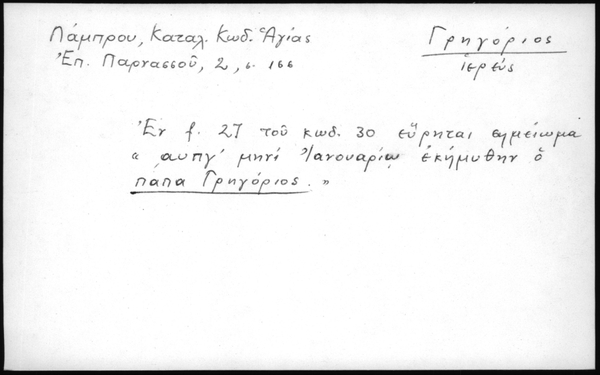 Λάμπρου, Καταλ. Κωδ. Ἁγίας
Γρηγόριος
Ἐπ. Παρνασσοῦ, 2, σ. 166
ἱερεύς
Ἐν f. 27 τοῦ κωδ. 30 εὕρηται σημείωμα
« ͵αυπγʹ μηνί Ἰανουαρίῳ ἐκήμυθην ὅ
πάπα Γρηγόριος. »